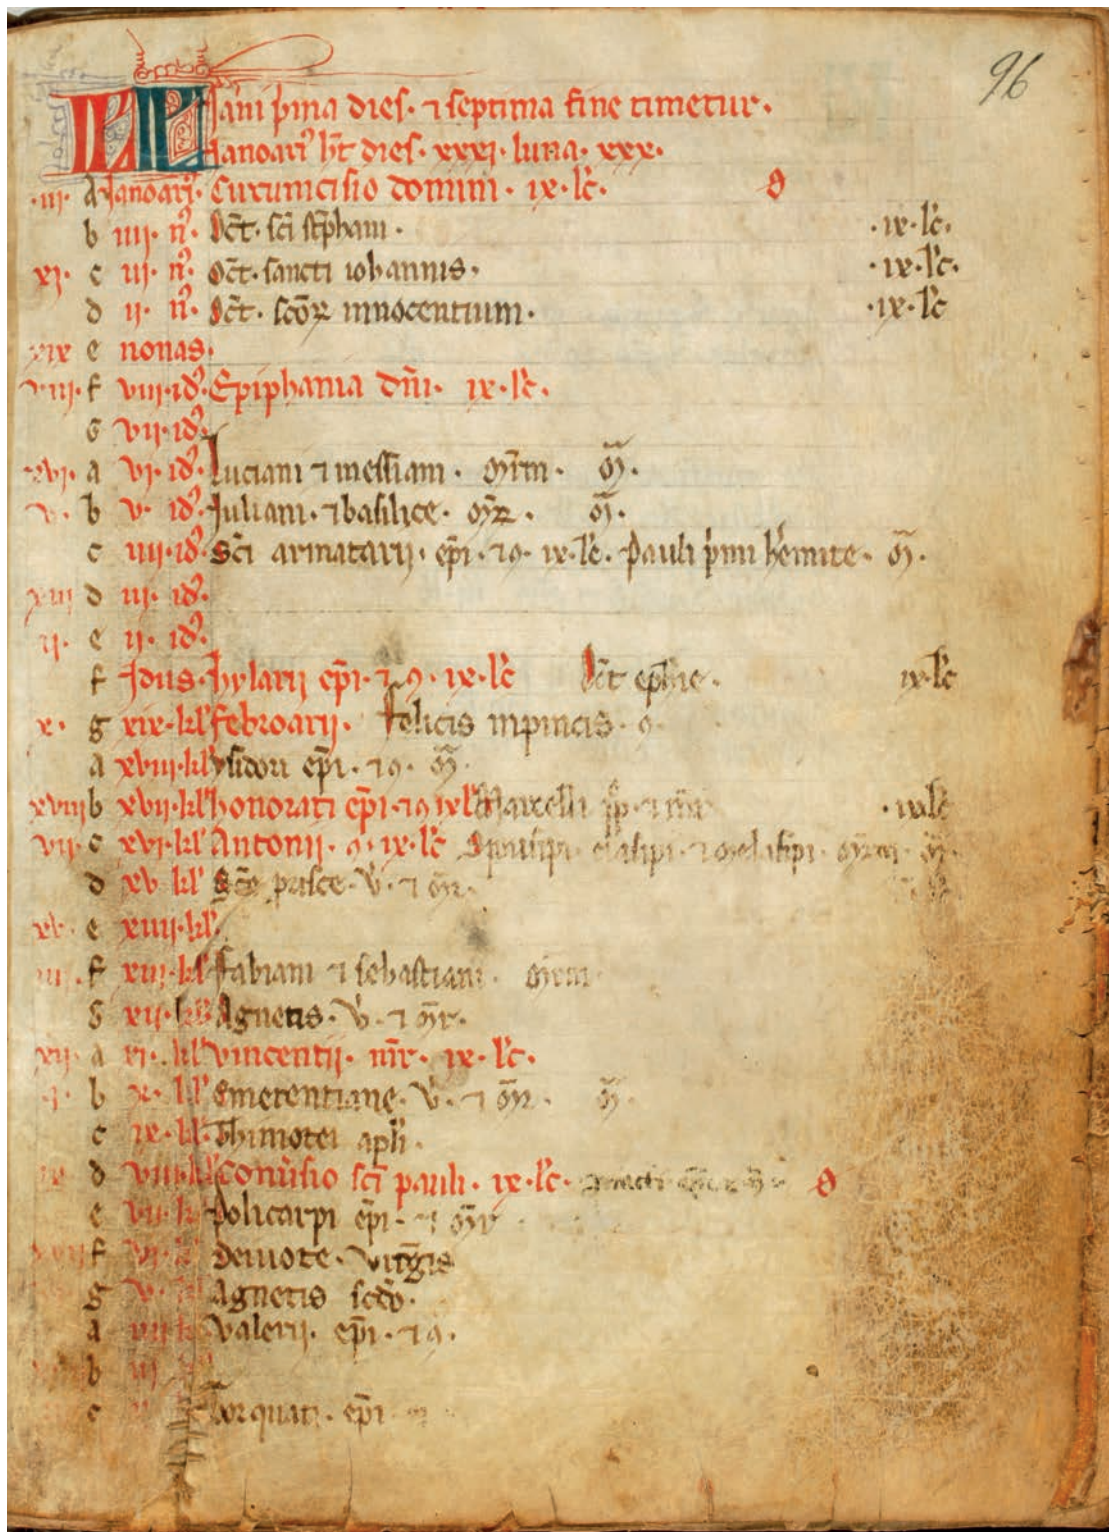 96
KL Jani prima dies· ⁊ septima fine timetur·
Januarꝰ hꝫt dies· xxxi· luna· xxx·
·iii· A Janoarꝰ· Circumcisio domini· ix· lc̄·
b iiii· nꝰ· Oct̄· sci stephani· ·ix·lc̄·
xi· c iii· nꝰ· Oct̄· sancti iohannis· ·ix·lc̄·
d ii· nꝰ· Oct̄· scōꝝ innocentium· ·ix·lc̄
xix e nonas·
viii· f viii·idꝰ· Epiphania dn̄i· ix·lc̄·
G vii·idꝰ·
xvi· a vi· idꝰ· Luciani ⁊ messiani· m̄rm· m̄·
v· b v· idꝰ· Juliani· ⁊ basilice· m̄ꝝ· m̄·
c iiii·idꝰ· Sc̄i armatarii· ep̄i· ⁊ ꝯ· ix·lc̄· Pauli p̄mi h̄emite· m̄·
xiii d iii· idꝰ·
ii· e ii· idꝰ·
f Idus· hylarii ep̄i· ⁊ ꝯ· ix·lc̄ Oct̄ eph̄ie· ix·lc̄
x· g xix·kl̄ febroarii· felicis inpincis· ꝯ
a xviii·kl̄ ysidori ep̄i· ⁊ ꝯ· m̄·
xviii b xvii·kl̄ honorati ep̄i· ⁊ ꝯ ix l̄ Marcelli pp̄· ⁊ mr̄ ·ix lc̄
vii· c xvi·kl̄ Antonii· ꝯ· ix·lc̄ Speusipi· elasipi· ⁊ melasipi· m̄rm· m̄·
d xv kl̄ Sc̄e prisce· v̄· ⁊ m̄r·
xv· e xiiii·kl̄·
iiii· f xiii·kl̄ fabiani ⁊ sebastiani· m̄rm
G xii·kl̄ Agnetis· v̄· ⁊ m̄r·
xii· a xi· kl̄ vincentii· mr̄· ix· lc̄·
·i· b x· kl̄ Emerentiane· v̄· ⁊ m̄r· m̄·
c ix·kl̄· Thimotei apl̄i·
ix d viii·kl̄ Conv̄sio sc̄i pauli· ix·lc̄·
e vii·k Policarpi ep̄i· ⁊ m̄r
xvii f vi· Devote· virḡis
g v· Agnetis scd̄o·
a iiii k Valerii· ep̄i· ⁊ ꝯ·
b iii
c Torquati· ep̄i